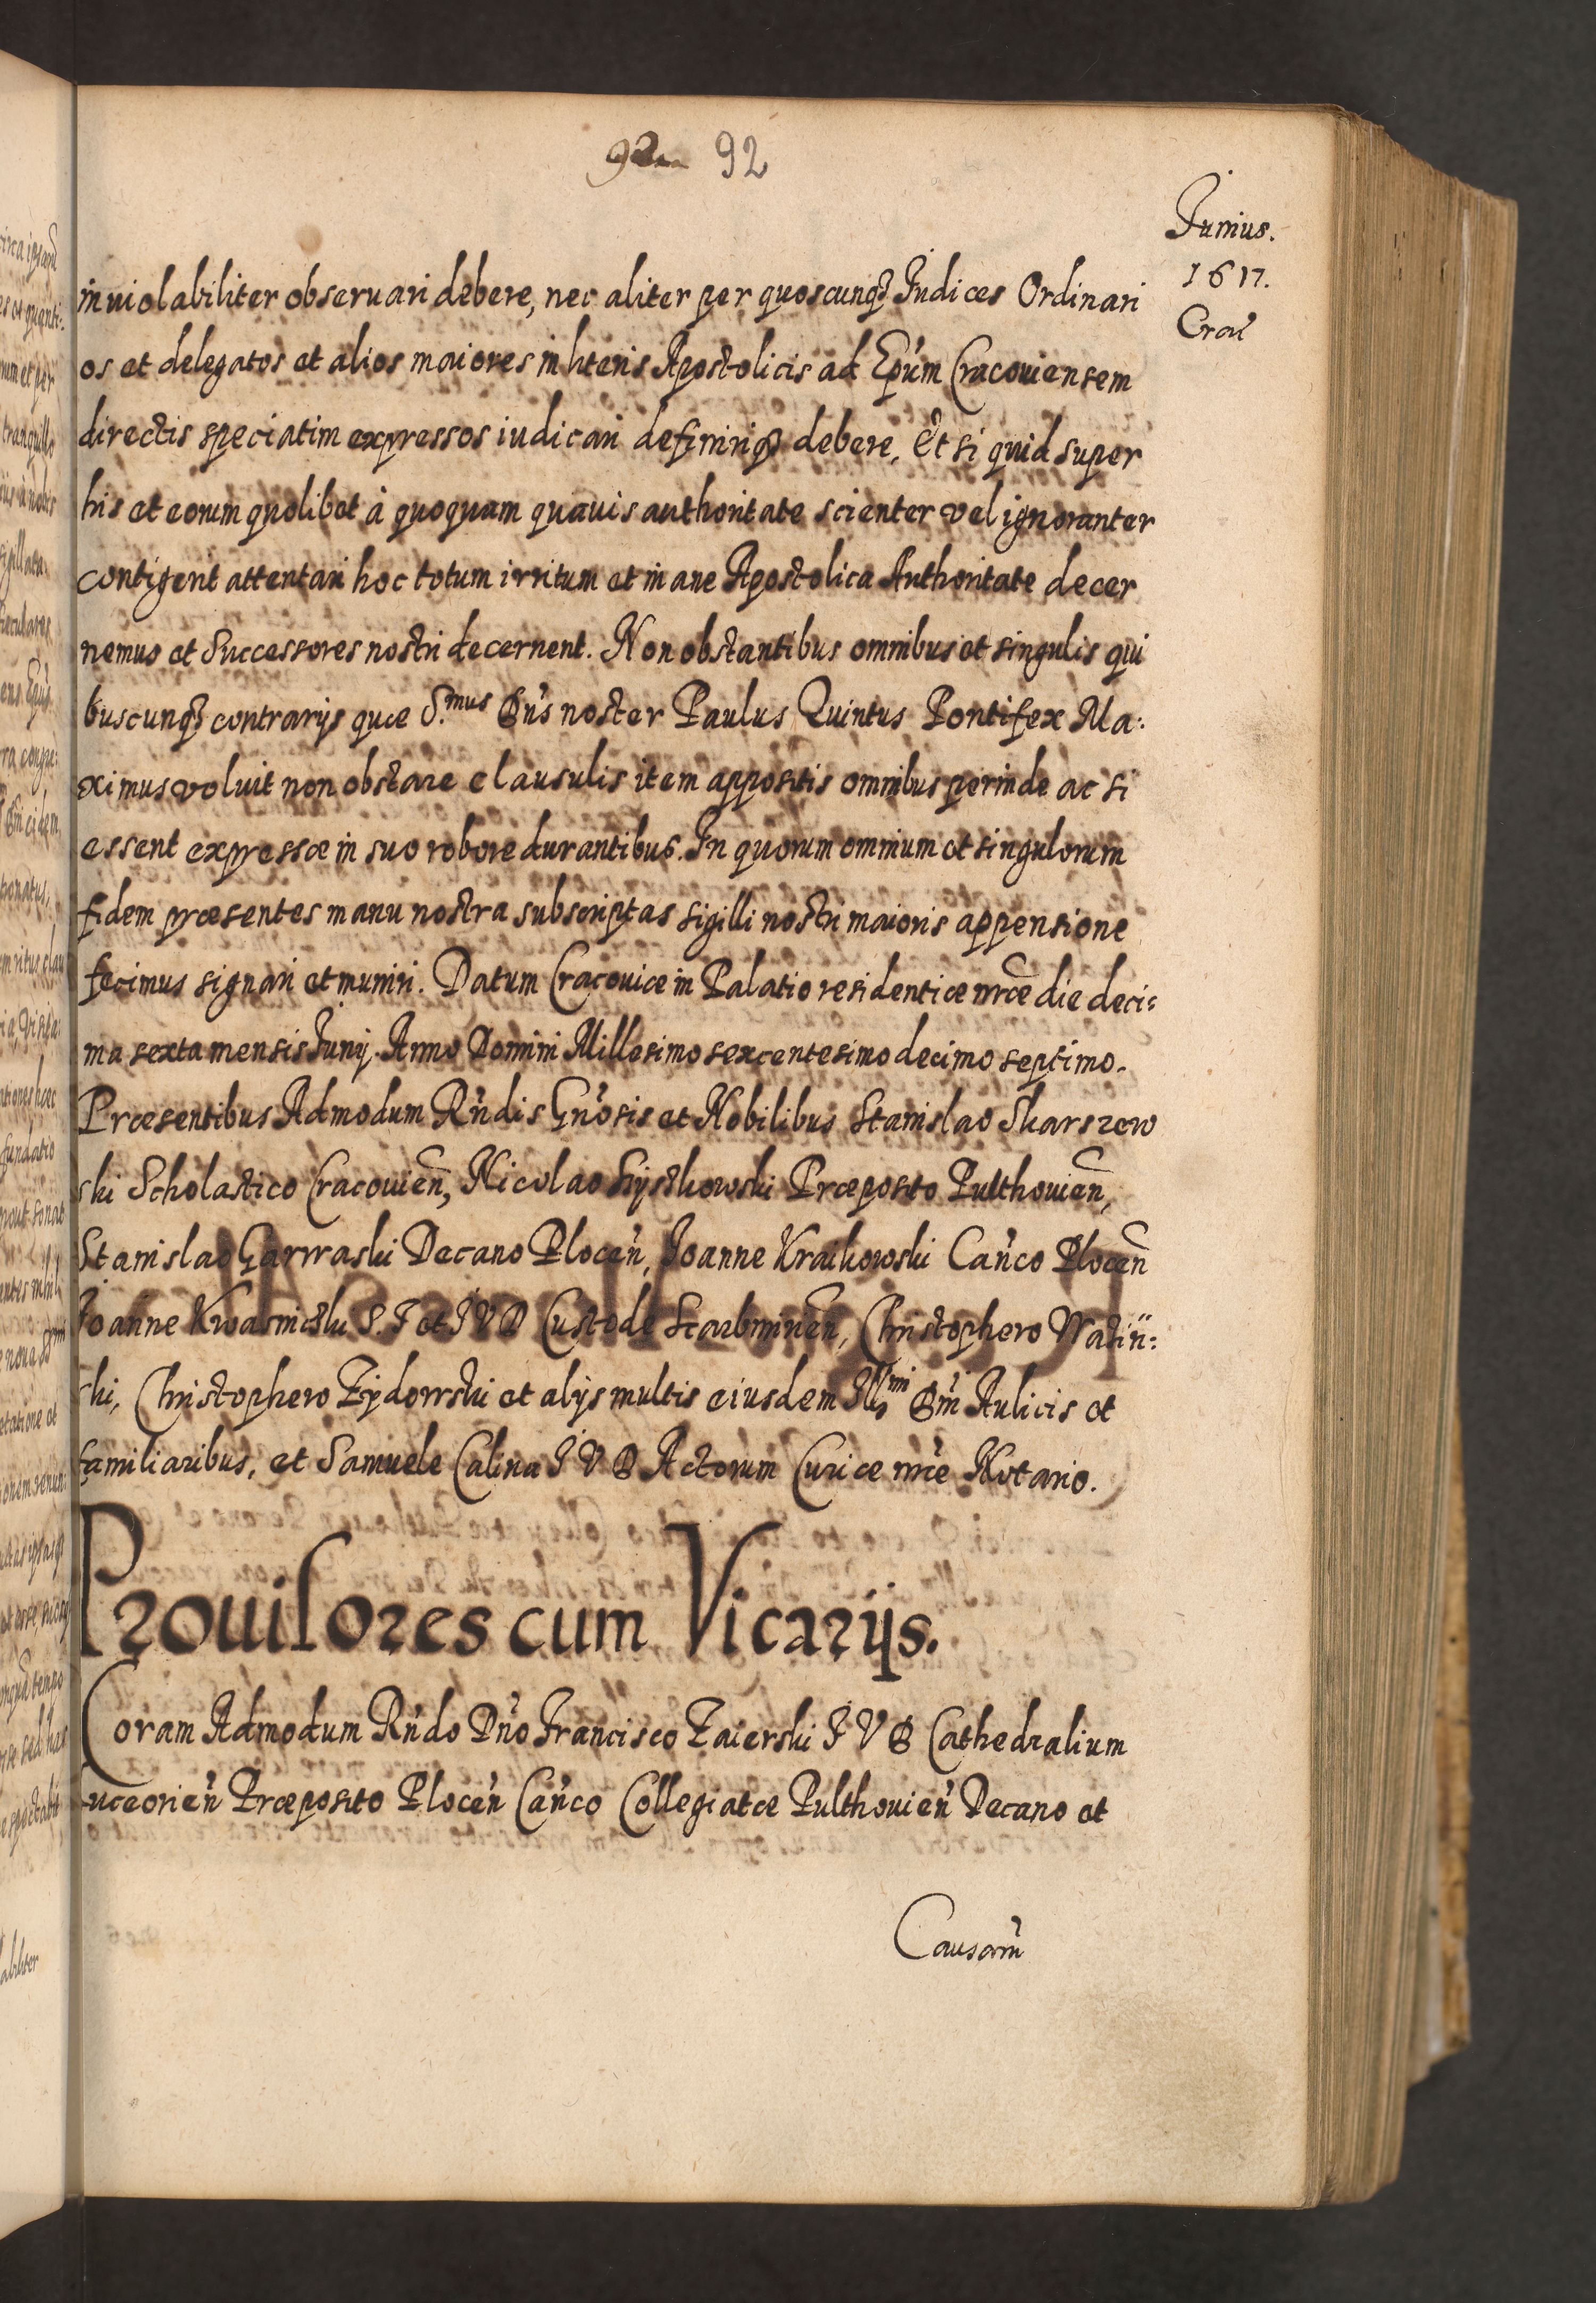 92 92
Junius.
1617.
Craŭ
inuiolabiliter obseruari debere, nec aliter per quoscunqȝ Judices Ordinari
os et delegatos et alios maiores in literis Apostolicis ad Epũm Cracouiensem
directis speciatim expressos iudicari definiriqȝ debere, Et si quid super
his et eorum quolibet à quoquam quauis authoritate scienter vel ignoranter
contigerit attentari hoc totum irritum et inane Apostolica Authoritate decer
nemus et Successores nostri decernent. Non obstantibus omnibus et singulis qui
buscunqȝ contrarijs quæ S.mus Dñs noster Paulus Quintus Pontifex Ma:
ximus voluit non obstare clausulis item appositis omnibus perinde ac si
essent expressæ in suo robore durantibus. In quorum omnium et singulorum
fidem præsentes manu nostra subscriptas sigilli nostri maioris appensione
fecimus signari et muniri. Datum Cracouiæ in Palatio residentiæ nr̃æ die deci:
ma sexta mensis Junij. Anno Domini Millesimo sexcentesimo decimo septimo.
Præsentibus Admodum Rñdis Gñosis et Nobilibus Stanislao Skarszew
ski Scholastico Cracouień, Nicolao Pułthouień,
Stanislao Decano Ploceń, Joanne Kraikowski Cańco Ploceń
Joanne S. T et J V D Custode Christophero
ski, Christophero Zydowski et alijs multis eiusdem Illmi Dñi Aulicis et
familiaribus, et Samuele Calina J V D Actorum Curiæ nr̃æ Notario.
Prouisores cum Vicarijs.
Coram Admodum Rñdo Dño Francisco Zaierski J V D Cathedralium
Luceorień Præposito Ploceń Cańco Collegiatæ Pulthouień Decano et
Causarũ